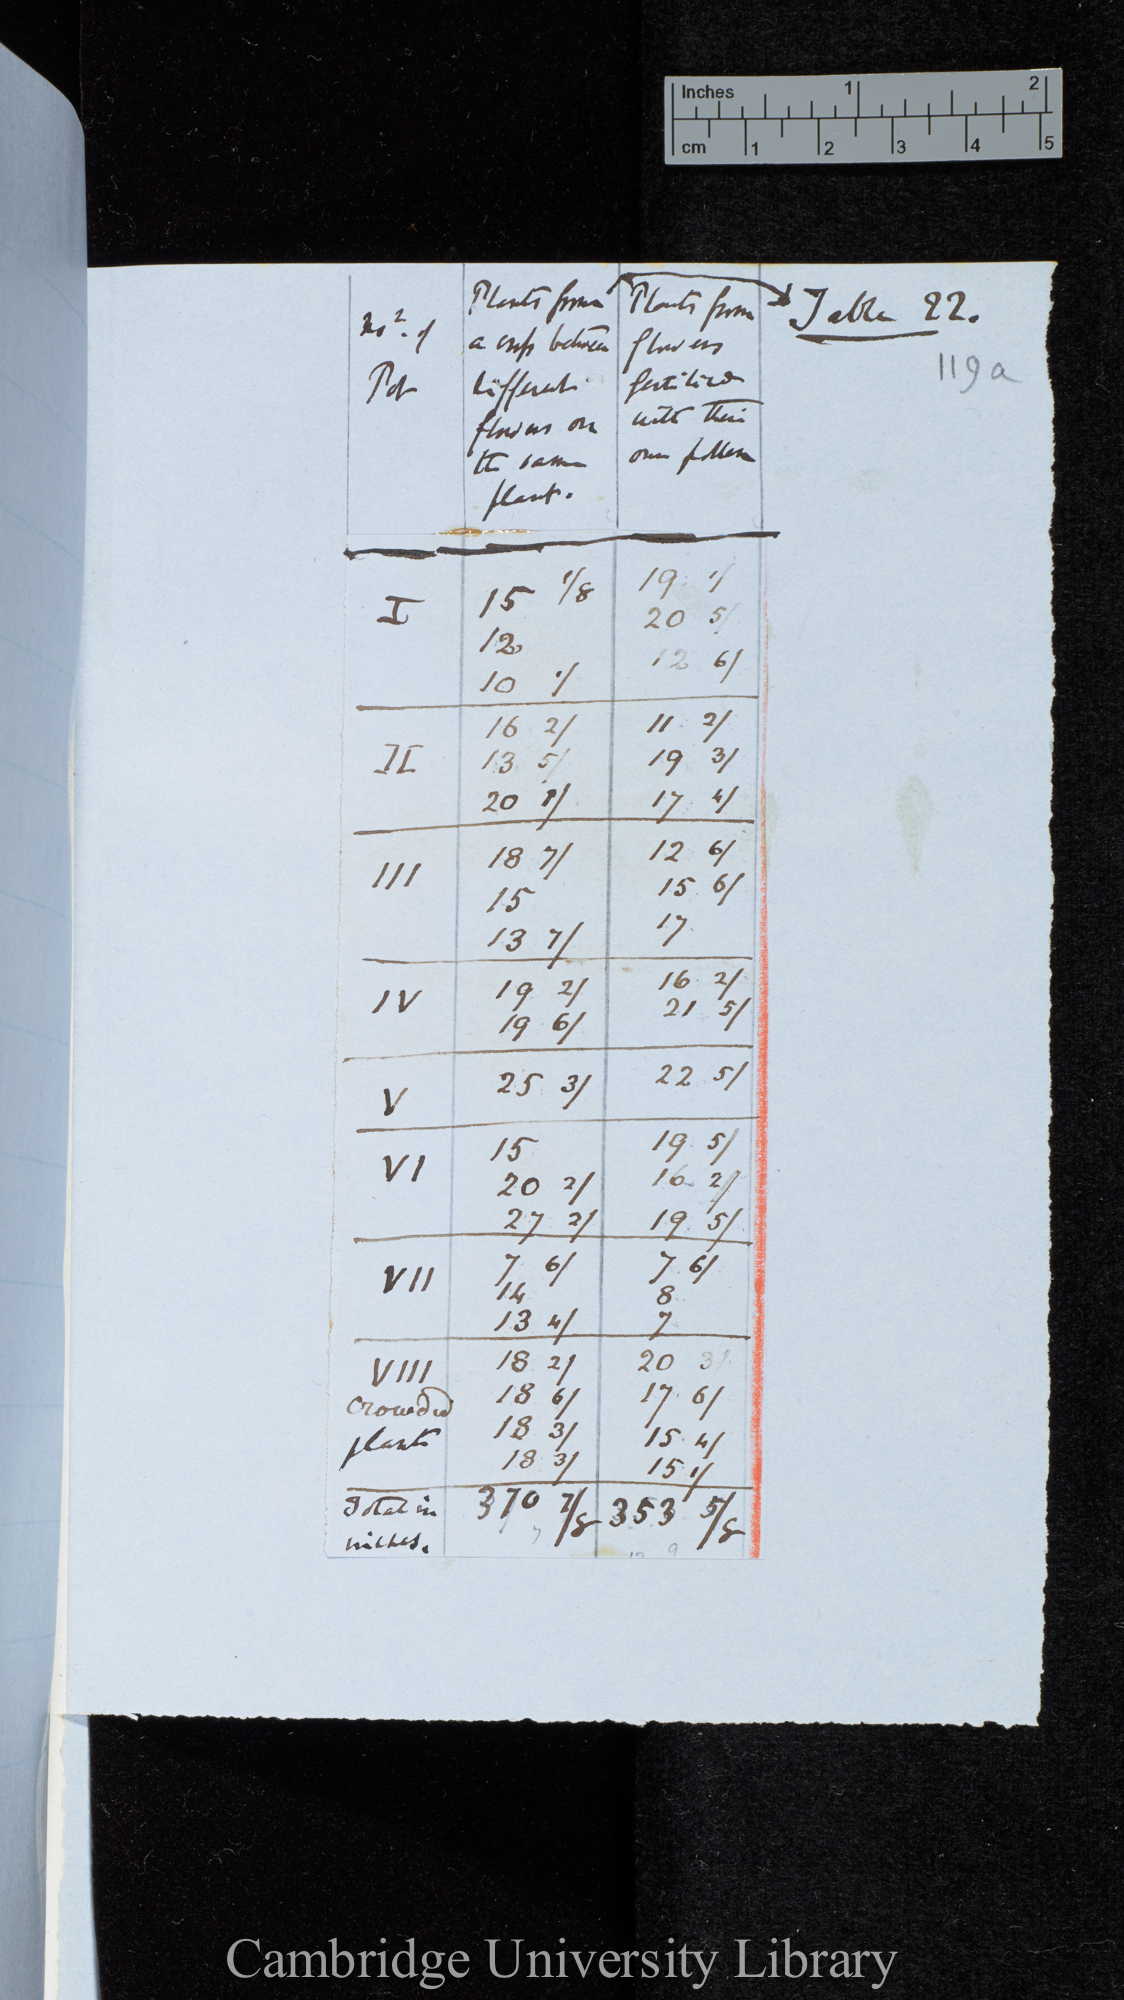 Inches 1 2
cm 1 2 3 4 5
Table 22.
119a
No. of
Pot
Plants from
a cross between
different
flowers on
the same
plant.
Plants from
flowers
fertilised
with their
own pollen
I
15 1/8 19 1/
12 20 5/
10 1/ 12 6/
II
16 2/ 11 2/
13 5/ 19 3/
20 1/ 17 4/
III
18 7/ 12 6/
15 15 6/
13 7/ 17
IV
19 2/ 16 2/
19 6/ 21 5/
V
25 3/ 22 5/
VI
15 19 5/
20 2/ 16 2/
27 2/ 19 5/
VII
7 6/ 7 6/
14 8
13 4/ 7
VIII
crowded
plants
18 2/ 20 3/
18 6/ 17 6/
18 3/ 15 4/
18 3/ 15 1/
Total in
inches.
370 7/8 353 5/8
Cambridge University Library